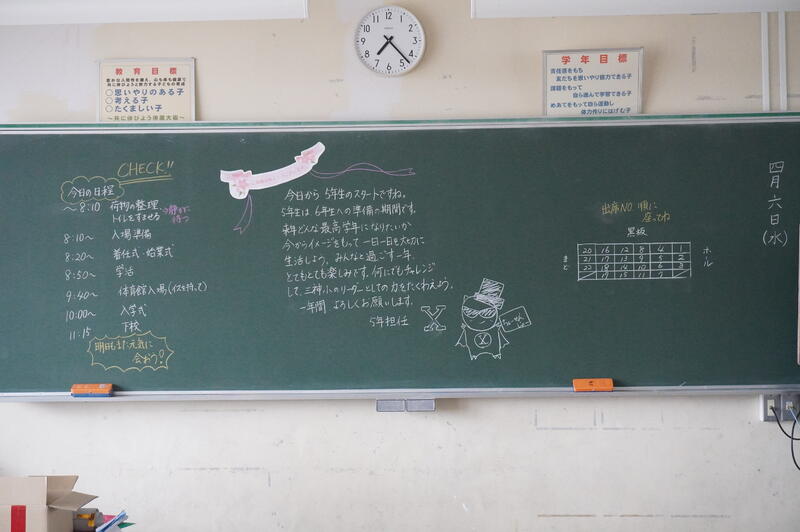 教育目標
○思いやりのある子
○考える子
○たくましい子
学年目標
責任感をもち
友だちを思いやり協力できる子
課題をもって
自ら進んで学習できる子
めあてをもって自ら運動し
体力作りにはげむ子
CHECK!!
今日の日程
～8:10 荷物の整理
トイレをすませる
→静かに待つ
8:10～ 入場準備
8:20～ 着任式・始業式
8:50～ 学活
9:40～ 体育館入場(イスを持って)
10:00～ 入学式
11:15 下校
明日もまた元気に
会おう!
今日から 5年生のスタートですね。
5年生は 6年生への準備の期間です。
来年どんな最高学年になりたいか
今からイメージをもって 一日一日を大切に
生活しよう。みんなと過ごす一年、
とてもとても楽しみです。何にでもチャレンジ
して、三神小のリーダーとしての力をたくわえよう。
一年間 よろしくお願いします。
5年担任
Y
出席NO 順に
座ってね
黒板
20 16 12 8 4 1
21 17 13 9 5 2
22 18 14 10 6 3
まど
ホール
四月六日(水)